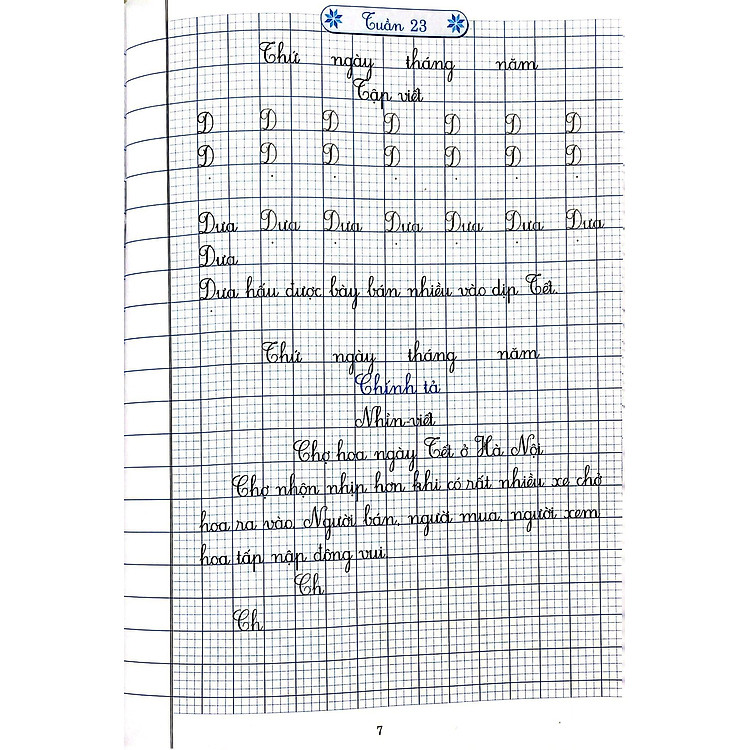 Tuần 23
Thứ ngày tháng năm
Tập viết
D D D D D D D
D D D D D D D
Dưa Dưa Dưa Dưa Dưa Dưa Dưa
Dưa
Dưa hấu được bày bán nhiều vào dịp Tết.
Thứ ngày tháng năm
Chính tả
Nhìn-viết
Chợ hoa ngày Tết ở Hà Nội
Chợ nhộn nhịp hơn khi có rất nhiều xe chở
hoa ra vào. Người bán, người mua, người xem
hoa tấp nập đông vui.
Ch
Ch
7